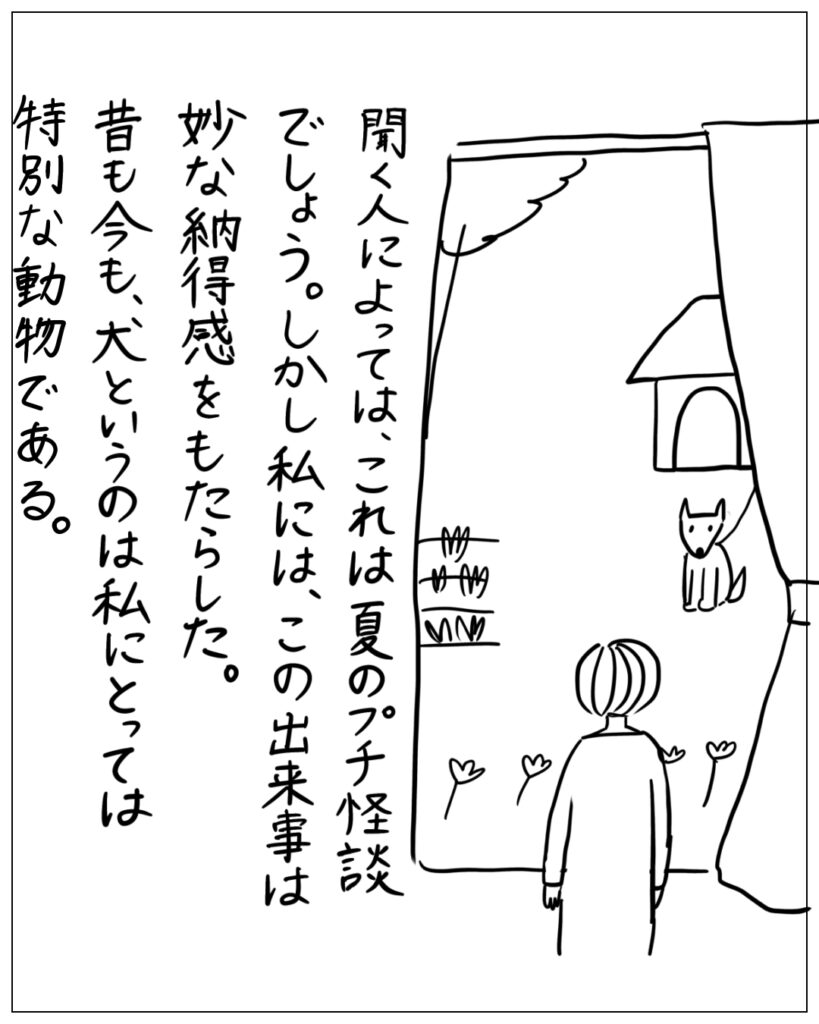 聞く人によっては、これは夏のプチ怪談
でしょう。しかし私には、この出来事は
妙な納得感をもたらした。
昔も今も、犬というのは私にとっては
特別な動物である。